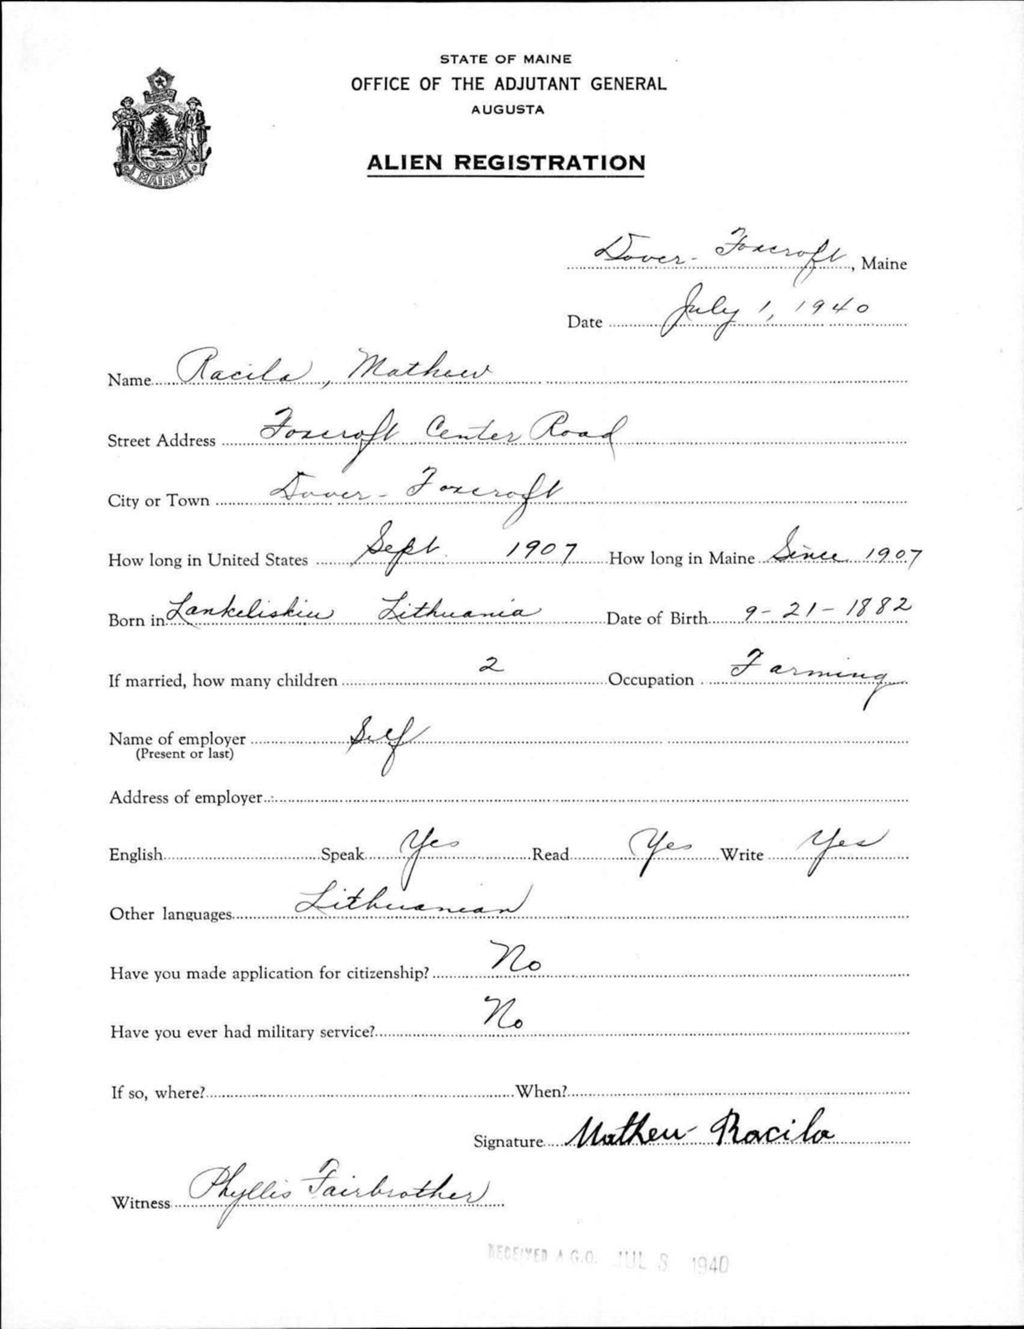 STATE OF MAINE
OFFICE OF THE ADJUTANT GENERAL
AUGUSTA
ALIEN REGISTRATION
MAINE
Dover-Foxcroft, Maine
Date July 1, 1940
Name Racila, Mathew
Street Address Foxcroft Center Road
City or Town Dover-Foxcroft
How long in United States Sept. 1907 How long in Maine Since 1907
Born in Lankeliskiu Lithuania Date of Birth 9-21-1882
If married, how many children 2 Occupation Farming
Name of employer Self
(Present or last)
Address of employer
English Speak Yes Read Yes Write Yes
Other languages Lithuanian
Have you made application for citizenship? No
Have you ever had military service? No
If so, where? When?
Signature Matheu Racila
Witness Phyllis Fairbrother
RECEIVED A.G.O. JUL 1940